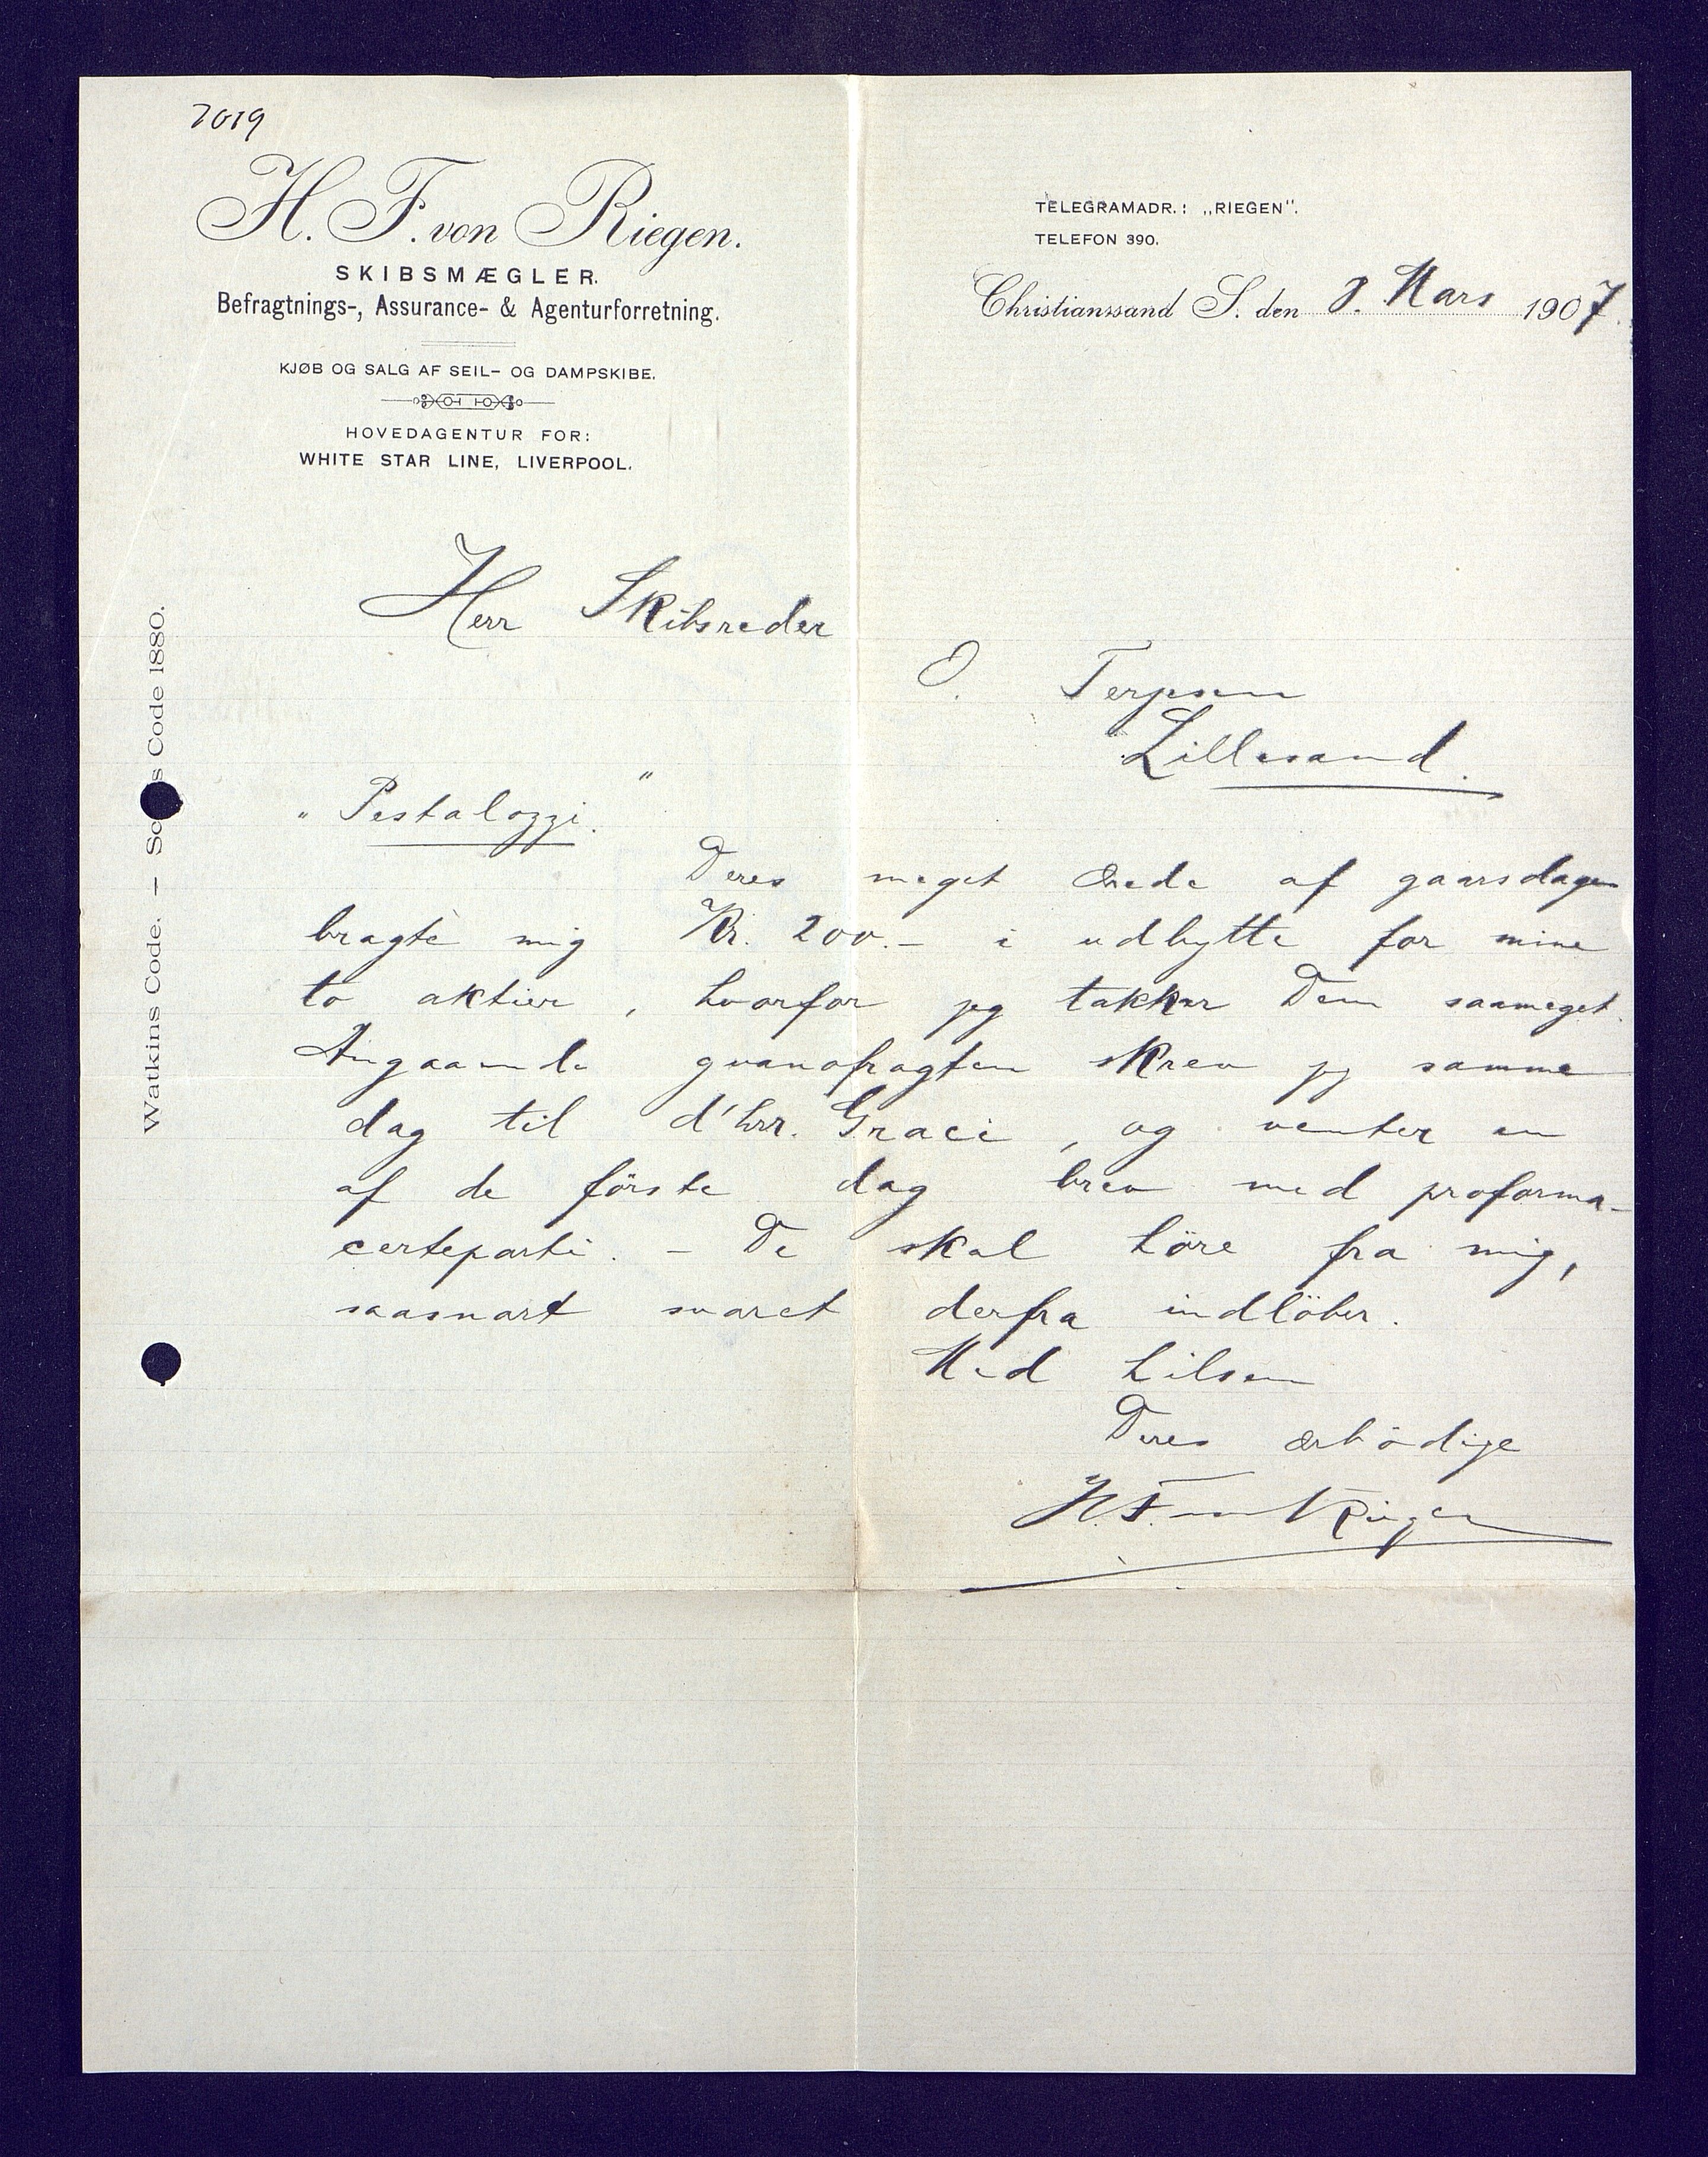 7019
H. F. von Riegen.
SKIBSMÆGLER.
Befragtnings-, Assurance- & Agenturforretning.
KJØB OG SALG AF SEIL- OG DAMPSKIBE.
HOVEDAGENTUR FOR:
WHITE STAR LINE, LIVERPOOL.
TELEGRAMADR.: „RIEGEN".
TELEFON 390.
Christianssand S. den 8. Mars 1907.
Watkins Code. — Sc s Code 1880.
Herr Skibsreder
O. Terpsen
Lillesand.
„Pestalozzi."
Deres meget ærede af gaarsdagen
bragte mig Kr. 200.- i udbytte for mine
to aktier, hvorfor jeg takker Dem saameget.
Angaaende guanofragten skrev jeg samme
dag til d'hrr. Graci, og venter en
af de förste dag brev med proforma-
certeparti. - De skal höre fra mig,
saasnart svaret derfra indlöber.
Med hilsen
Deres ærbödige
H. F. von Riegen